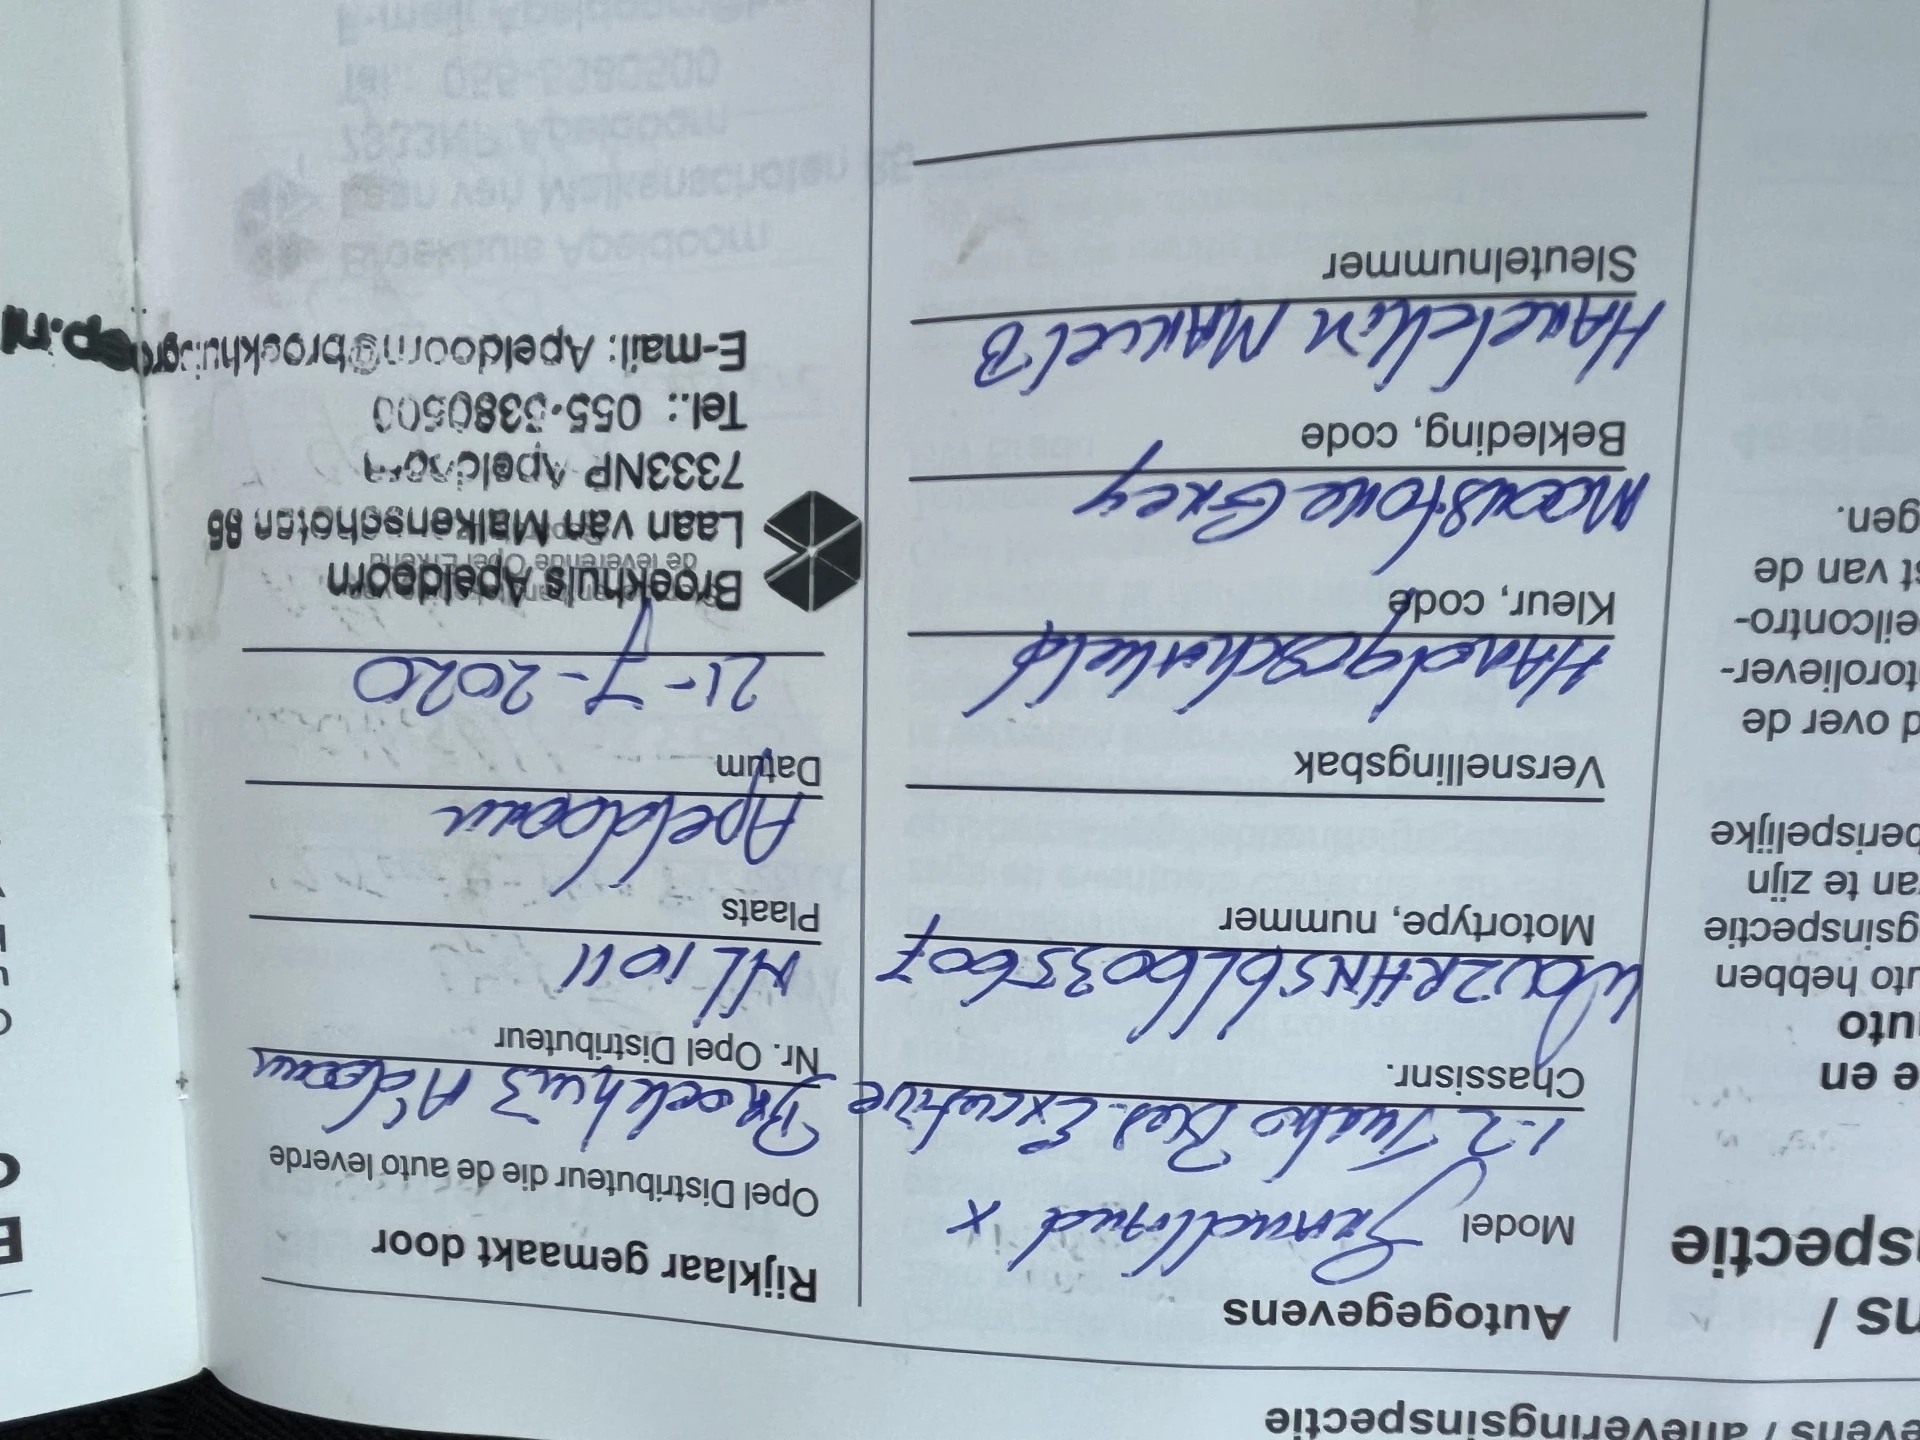 evens / afleveringsinspectie
ns /
spectie
e en
uto
uto hebben
gsinspectie
an te zijn
berispelijke
d over de
toroliever-
eilcontro-
st van de
gen.
Autogegevens
Model Grandland x
1.2 Turbo Bus. Executive
Chassisnr.
Motortype, nummer
Versnellingsbak
Handgeschakeld
Kleur, code
Moonstone Grey
Bekleding, code
Sleutelnummer
Rijklaar gemaakt door
Opel Distributeur die de auto leverde
Broekhuis A'doorn
Nr. Opel Distributeur
NL 1011
Plaats
Apeldoorn
Datum
21-7-2020
Broekhuis Apeldoorn
de leverende Opel Erkend
Laan van Malkenschoten 86
7333NP Apeldoorn
Tel.: 055-5380500
E-mail: Apeldoorn@broekhuisgroep.nl